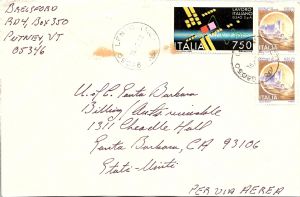 BRELSFORD
RD4, BOX 350
PUTNEY, VT
05346
LAVORO
ITALIANO
ITALIA 750
ITALIA
U. of C. Santa Barbara
Billing/Accts receivable
1311 Cheadle Hall
Santa Barbara, CA 93106
Stati-Uniti
PER VIA AEREA